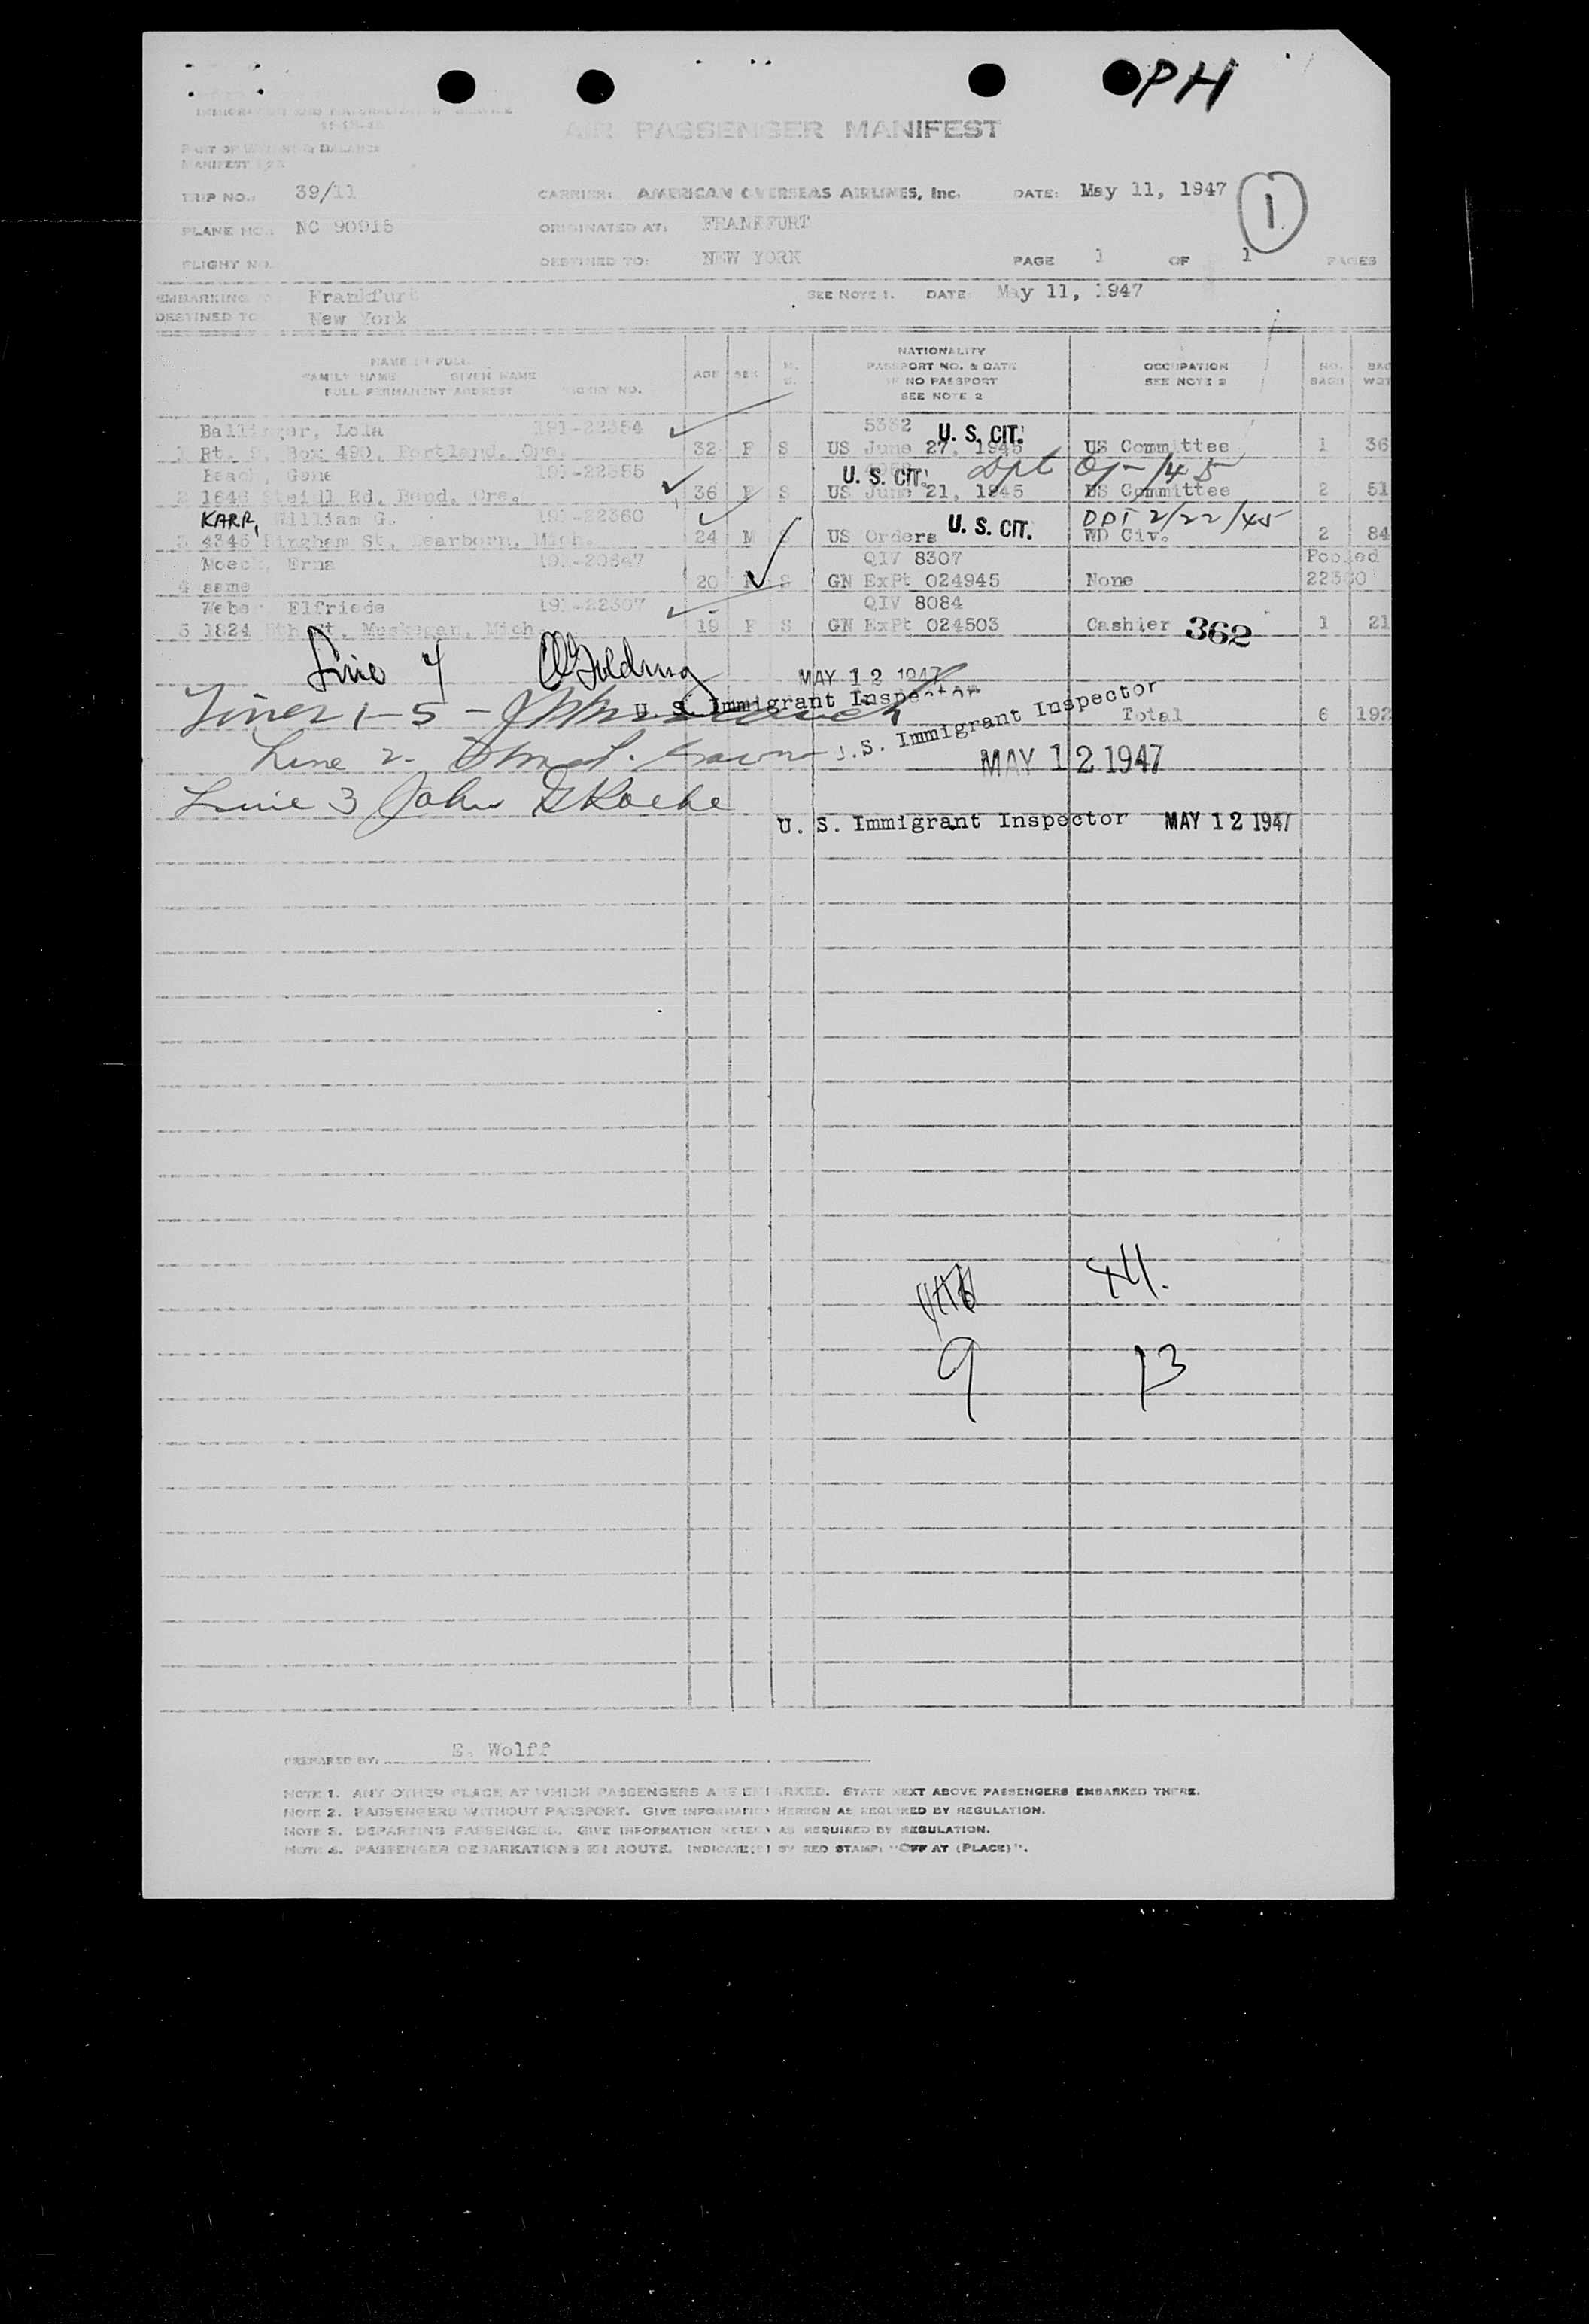 PH
IMMIGRATION AND NATURALIZATION SERVICE
AIR PASSENGER MANIFEST
PART OF WEIGHT & BALANCE
MANIFEST
TRIP NO.: 39/11 CARRIER: AMERICAN OVERSEAS AIRLINES, Inc. DATE: May 11, 1947
1
PLANE NO.: NC 90915 ORIGINATED AT: FRANKFURT
FLIGHT NO. DESTINED TO: NEW YORK PAGE 1 OF 1 PAGES
EMBARKING Frankfurt SEE NOTE 1. DATE May 11, 1947
DESTINED TO New York
NAME IN FULL
FAMILY NAME GIVEN NAME
FULL PERMANENT ADDRESS TICKET NO.
AGE SEX M. S.
NATIONALITY
PASSPORT NO. & DATE
IF NO PASSPORT
SEE NOTE 2
OCCUPATION
SEE NOTE 3
NO. BAGS
BAG WGT
Ballinger, Lola 191-22354 5382 U. S. CIT.
1 Rt. 9, Box 490, Portland, Ore. 32 F S US June 27, 1945 US Committee 1 36
Beach, Gene 191-22355 U. S. CIT. Dpt /45
2 1646 Steidl Rd, Bend, Ore. 36 F S US June 21, 1945 US Committee 2 51
KARR, William G. 191-22360 U. S. CIT. DPT 2/22/45
3 4346 Bingham St, Dearborn, Mich. 24 M S US Orders WD Civ. 2 84
Moeck, Erna 191-20867 QIV 8307 Pooled
4 same 20 F S GN ExPt 024945 None 22360
Weber, Elfriede 191-22307 QIV 8084
5 1824 5th St, Muskegan, Mich 19 F S GN ExPt 024503 Cashier 362 1 21
Line 4 Golding MAY 12 1947
U. S. Immigrant Inspector
Lines 1-5 -
Total 6 192
Line 2. U.S. Immigrant Inspector
MAY 12 1947
Line 3 John Roche
U. S. Immigrant Inspector MAY 12 1947
9 13
PREPARED BY: E. Wolff
NOTE 1. ANY OTHER PLACE AT WHICH PASSENGERS ARE EMBARKED. STATE NEXT ABOVE PASSENGERS EMBARKED THERE.
NOTE 2. PASSENGERS WITHOUT PASSPORT. GIVE INFORMATION HEREON AS REQUIRED BY REGULATION.
NOTE 3. DEPARTING PASSENGERS. GIVE INFORMATION HEREON AS REQUIRED BY REGULATION.
NOTE 4. PASSENGER DEBARKATIONS EN ROUTE. INDICATE(D) BY RED STAMP: "OFF AT (PLACE)".